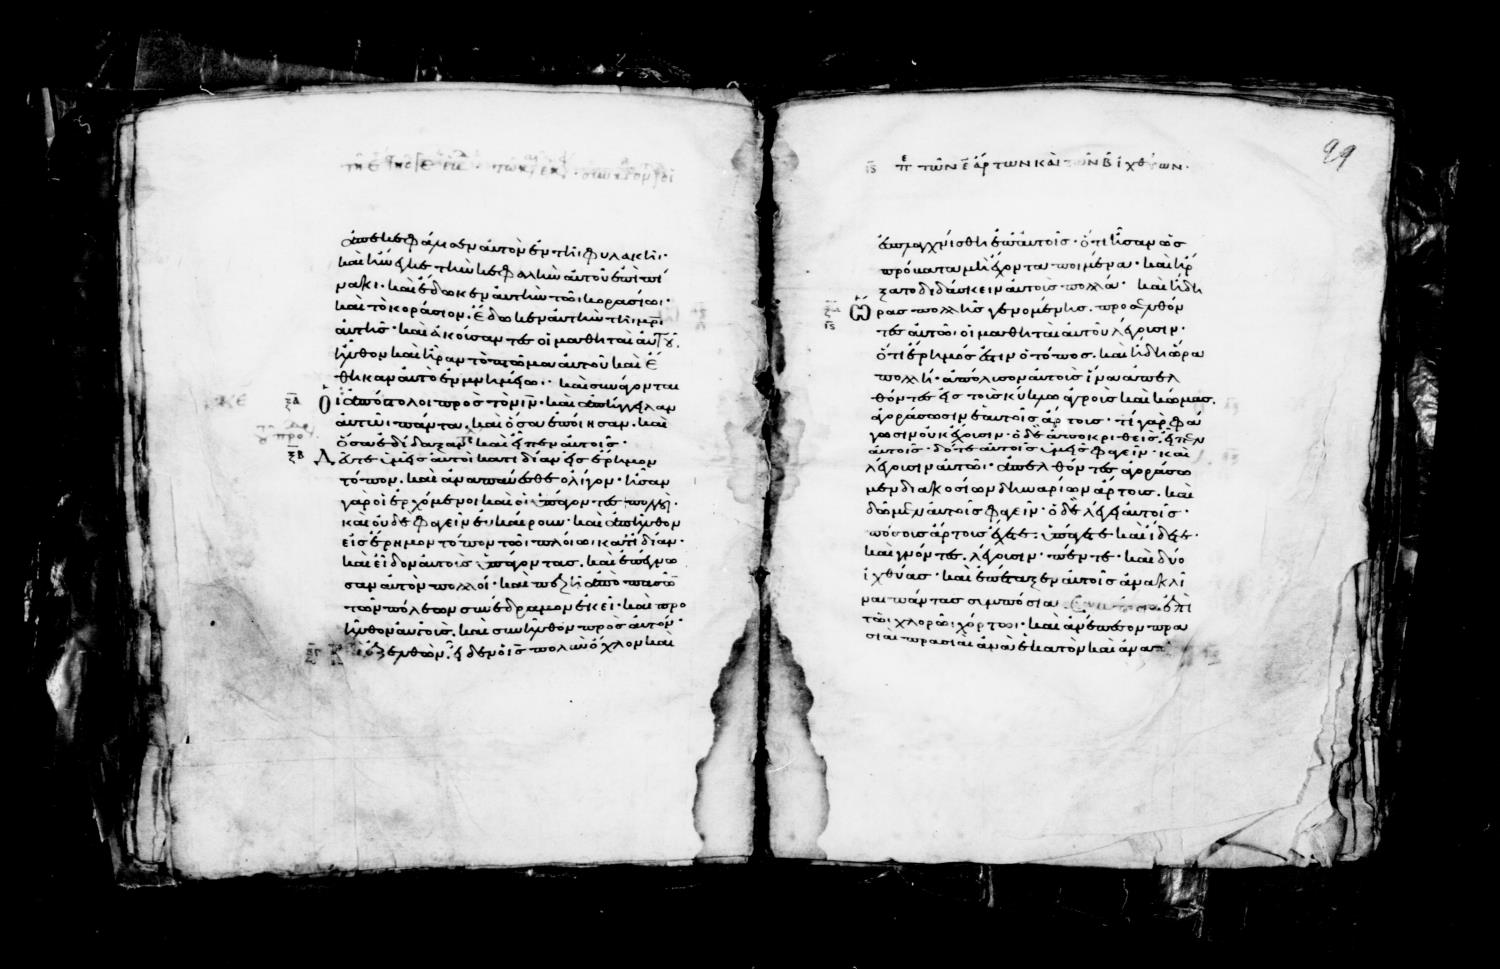 ἀπεκεφάλησεν αὐτὸν ἐν τῆι φυλακῆι·
καὶ ἤνεγκε τὴν κεφαλὴν αὐτοῦ ἐπὶ πί
νακι· καὶ ἔδωκεν αὐτὴν τῶι κορασίωι·
καὶ τὸ κοράσιον ἔδωκεν αὐτὴν τῆι μρι
αὐτῆς· καὶ ἀκούσαντες οἱ μαθηταὶ αὐτοῦ,
ἦλθον καὶ ἦραν τὸ πτῶμα αὐτοῦ καὶ ἔ
θηκαν αὐτὸ ἐν μνημείω· καὶ συνάγονται
ξα οἱ ἀπόστολοι πρὸς τὸν ιν· καὶ ἀπήγγειλαν
αὐτῶι πάντα, καὶ ὅσα ἐποίησαν, καὶ
ὅσα ἐδίδαξαν· καὶ εἶπεν αὐτοῖς·
ξβ Δεῦτε ὑμεῖς αὐτοὶ κατιδίαν εἰς ἔρημον
τόπον, καὶ ἀναπαύεσθε ὀλίγον· ἦσαν
γὰρ οἱ ἐρχόμενοι καὶ οἱ ὑπάγοντες πολλοί·
καὶ οὐδὲ φαγεῖν εὐκαίρουν· καὶ ἀπῆλθον
εἰς ἔρημον τόπον τῶι πλοίωι κατιδίαν·
καὶ εἶδον αὐτοὺς ὑπάγοντας, καὶ ἐπέγνω
σαν αὐτὸν πολλοί· καὶ πεζῆ ἀπὸ πασῶν
τῶν πόλεων συνέδραμον ἐκεῖ· καὶ προ
ῆλθον αὐτοὺς, καὶ συνῆλθον πρὸς αὐτόν·
ἐξελθὼν, εἶδεν ὁ ις πολὺν ὄχλον καὶ
99
ις πε τῶν ε ἄρτων καὶ τῶν β ἰχθύων·
ἐσπλαγχνίσθη ἐπ αὐτοῖς· ὅτι ἦσαν ὡς
πρόβατα μὴ ἔχοντα ποιμένα· καὶ ἤρ
ξατο διδάσκειν αὐτοὺς πολλά· καὶ ἤδη
ὥρας πολλῆς γενομένης, προσελθόν
τες αὐτῶ οἱ μαθηταὶ αὐτοῦ λέγουσιν·
ὅτι ἔρημός ἐστιν ὁ τόπος, καὶ ἤδη ὥρα
πολλή· ἀπόλυσον αὐτοὺς ἵνα ἀπελ
θόντες εἰς τοὺς κύκλω ἀγροὺς καὶ κώμας,
ἀγοράσωσιν ἑαυτοῖς ἄρτους· τί γὰρ φά
γωσιν οὐκ ἔχουσιν· ὁ δὲ ἀποκριθεὶς, εἶπεν
αὐτοῖς· δότε αὐτοῖς ὑμεῖς φαγεῖν· καὶ
λέγουσιν αὐτῶι· ἀπελθόντες ἀγοράσω
μεν διακοσίων δηναρίων ἄρτους, καὶ
δῶμεν αὐτοῖς φαγεῖν· ὁ δὲ λέγει αὐτοῖς·
πόσους ἄρτους ἔχετε; ὑπάγετε καὶ ἴδετε·
καὶ γνόντες, λέγουσιν· πέντε· καὶ δύο
ἰχθύας· καὶ ἐπέταξεν αὐτοῖς ἀνακλῖ
ναι πάντας συμπόσια ἐπὶ
τῶι χλορῶι χόρτωι· καὶ ἀνέπεσον πρα
σιαὶ πρασιαὶ ἀνὰ ἑκατὸν καὶ ἀνὰ π